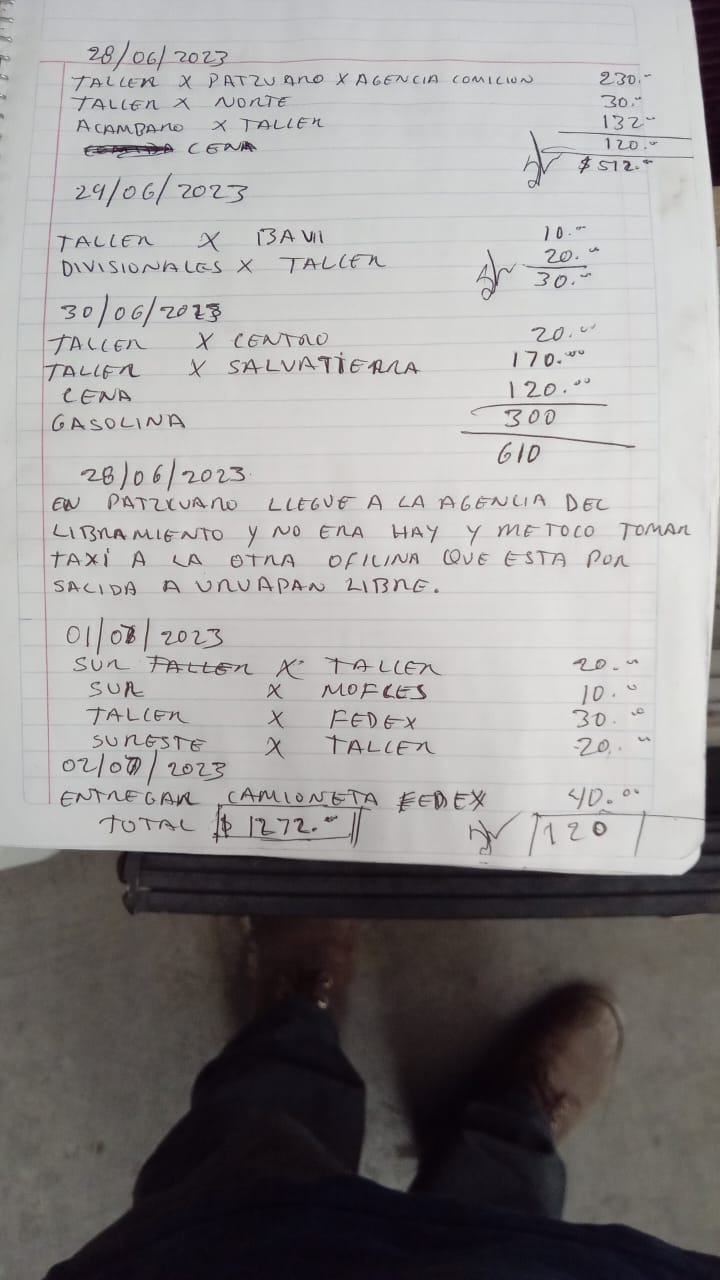 28/06/2023
TALLER X PATZUARO X AGENCIA COMICION 230.-
TALLER X NORTE 30.-
ACAMBARO X TALLER 132-
CENA 120.-
$ 512.-
29/06/2023
TALLER X BAVII 10.-
DIVISIONALES X TALLER 20.-
30.-
30/06/2023
TALLER X CENTRO 20.00
TALLER X SALVATIERRA 170.00
CENA 120.00
GASOLINA 300
610
28/06/2023.
EN PATZCUARO LLEGUE A LA AGENCIA DEL
LIBRAMIENTO Y NO ERA HAY Y METOCO TOMAR
TAXI A LA OTRA OFICINA QUE ESTA POR
SALIDA A URUAPAN LIBRE.
01/07/2023
SUR TALLER X TALLER 20.-
SUR X MOFLES 10.-
TALLER X FEDEX 30.00
SURESTE X TALLER 20.-
02/07/2023
ENTREGAR CAMIONETA FEDEX 40.00
TOTAL $ 1272.- 120